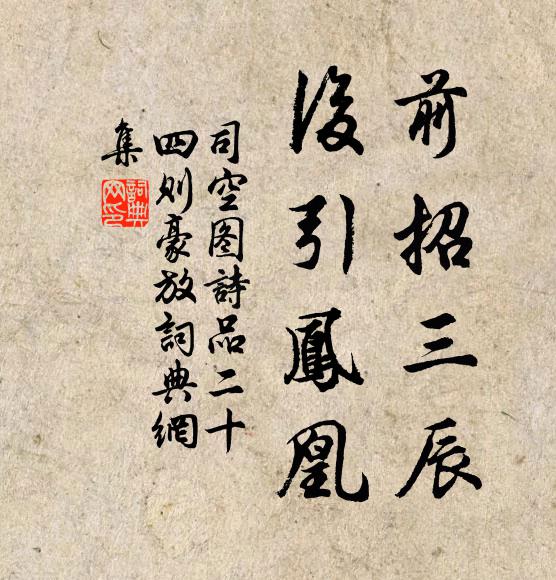 前招三辰
後引鳳凰
司空图詩品二十
四则豪放詞典網
集
詞典
网印